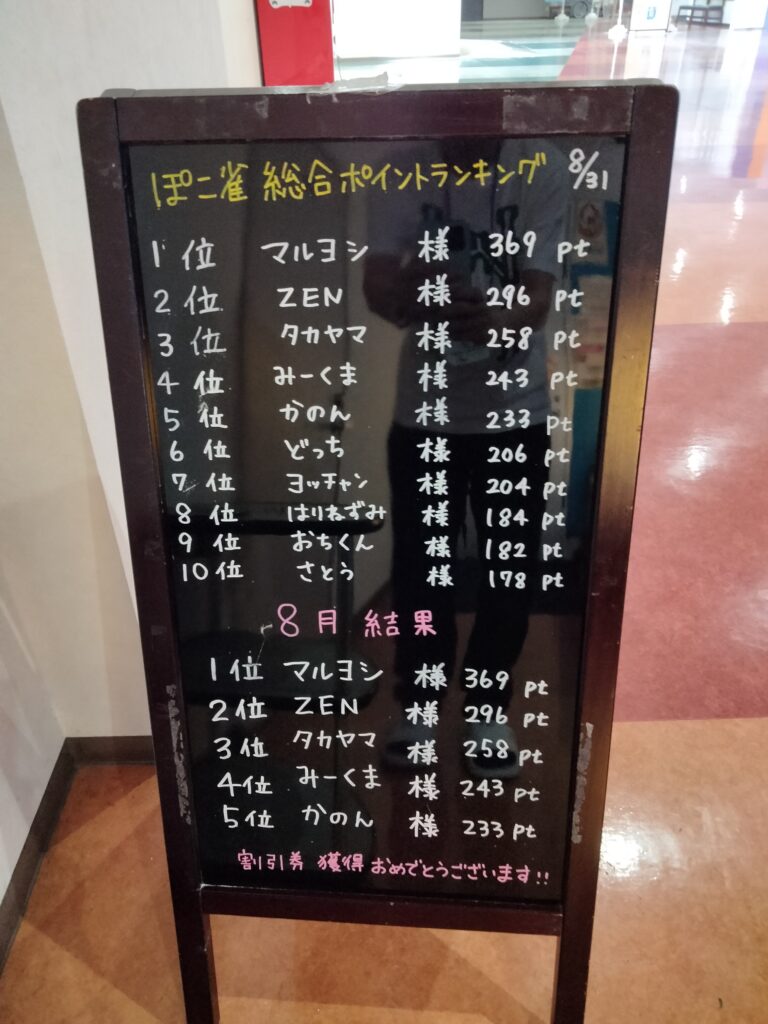 ぽこ雀 総合ポイントランキング 8/31
1位 マルヨシ 様 369 pt
2位 ZEN 様 296 pt
3位 タカヤマ 様 258 pt
4位 みーくま 様 243 pt
5位 かのん 様 233 pt
6位 どっち 様 206 pt
7位 ヨッチャン 様 204 pt
8位 はりねずみ 様 184 pt
9位 おちくん 様 182 pt
10位 さとう 様 178 pt
8月 結果
1位 マルヨシ 様 369 pt
2位 ZEN 様 296 pt
3位 タカヤマ 様 258 pt
4位 みーくま 様 243 pt
5位 かのん 様 233 pt
割引券 獲得 おめでとうございます!!